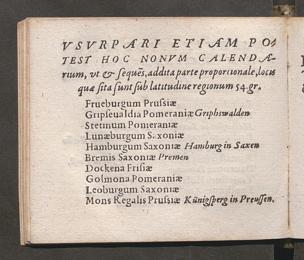 VSVRPARI ETIAM PO-
TEST HOC NONVM CALENDA-
rium, vt & sequẽs, addita parte proportionale, locis
quæ sita sunt sub latitudine regionum 54. gr.
Frueburgum Prussiæ
Gripseualdia Pomeraniæ Griphswalden
Stetinum Pomeraniæ
Lunæburgum Saxoniæ
Hamburgum Saxoniæ Hamburg in Saxen
Bremis Saxoniæ Premen
Dockena Frisiæ
Gosmona Pomeraniæ
Leoburgum Saxoniæ
Mons Regalis Prussiæ Künigsperg in Preussen.